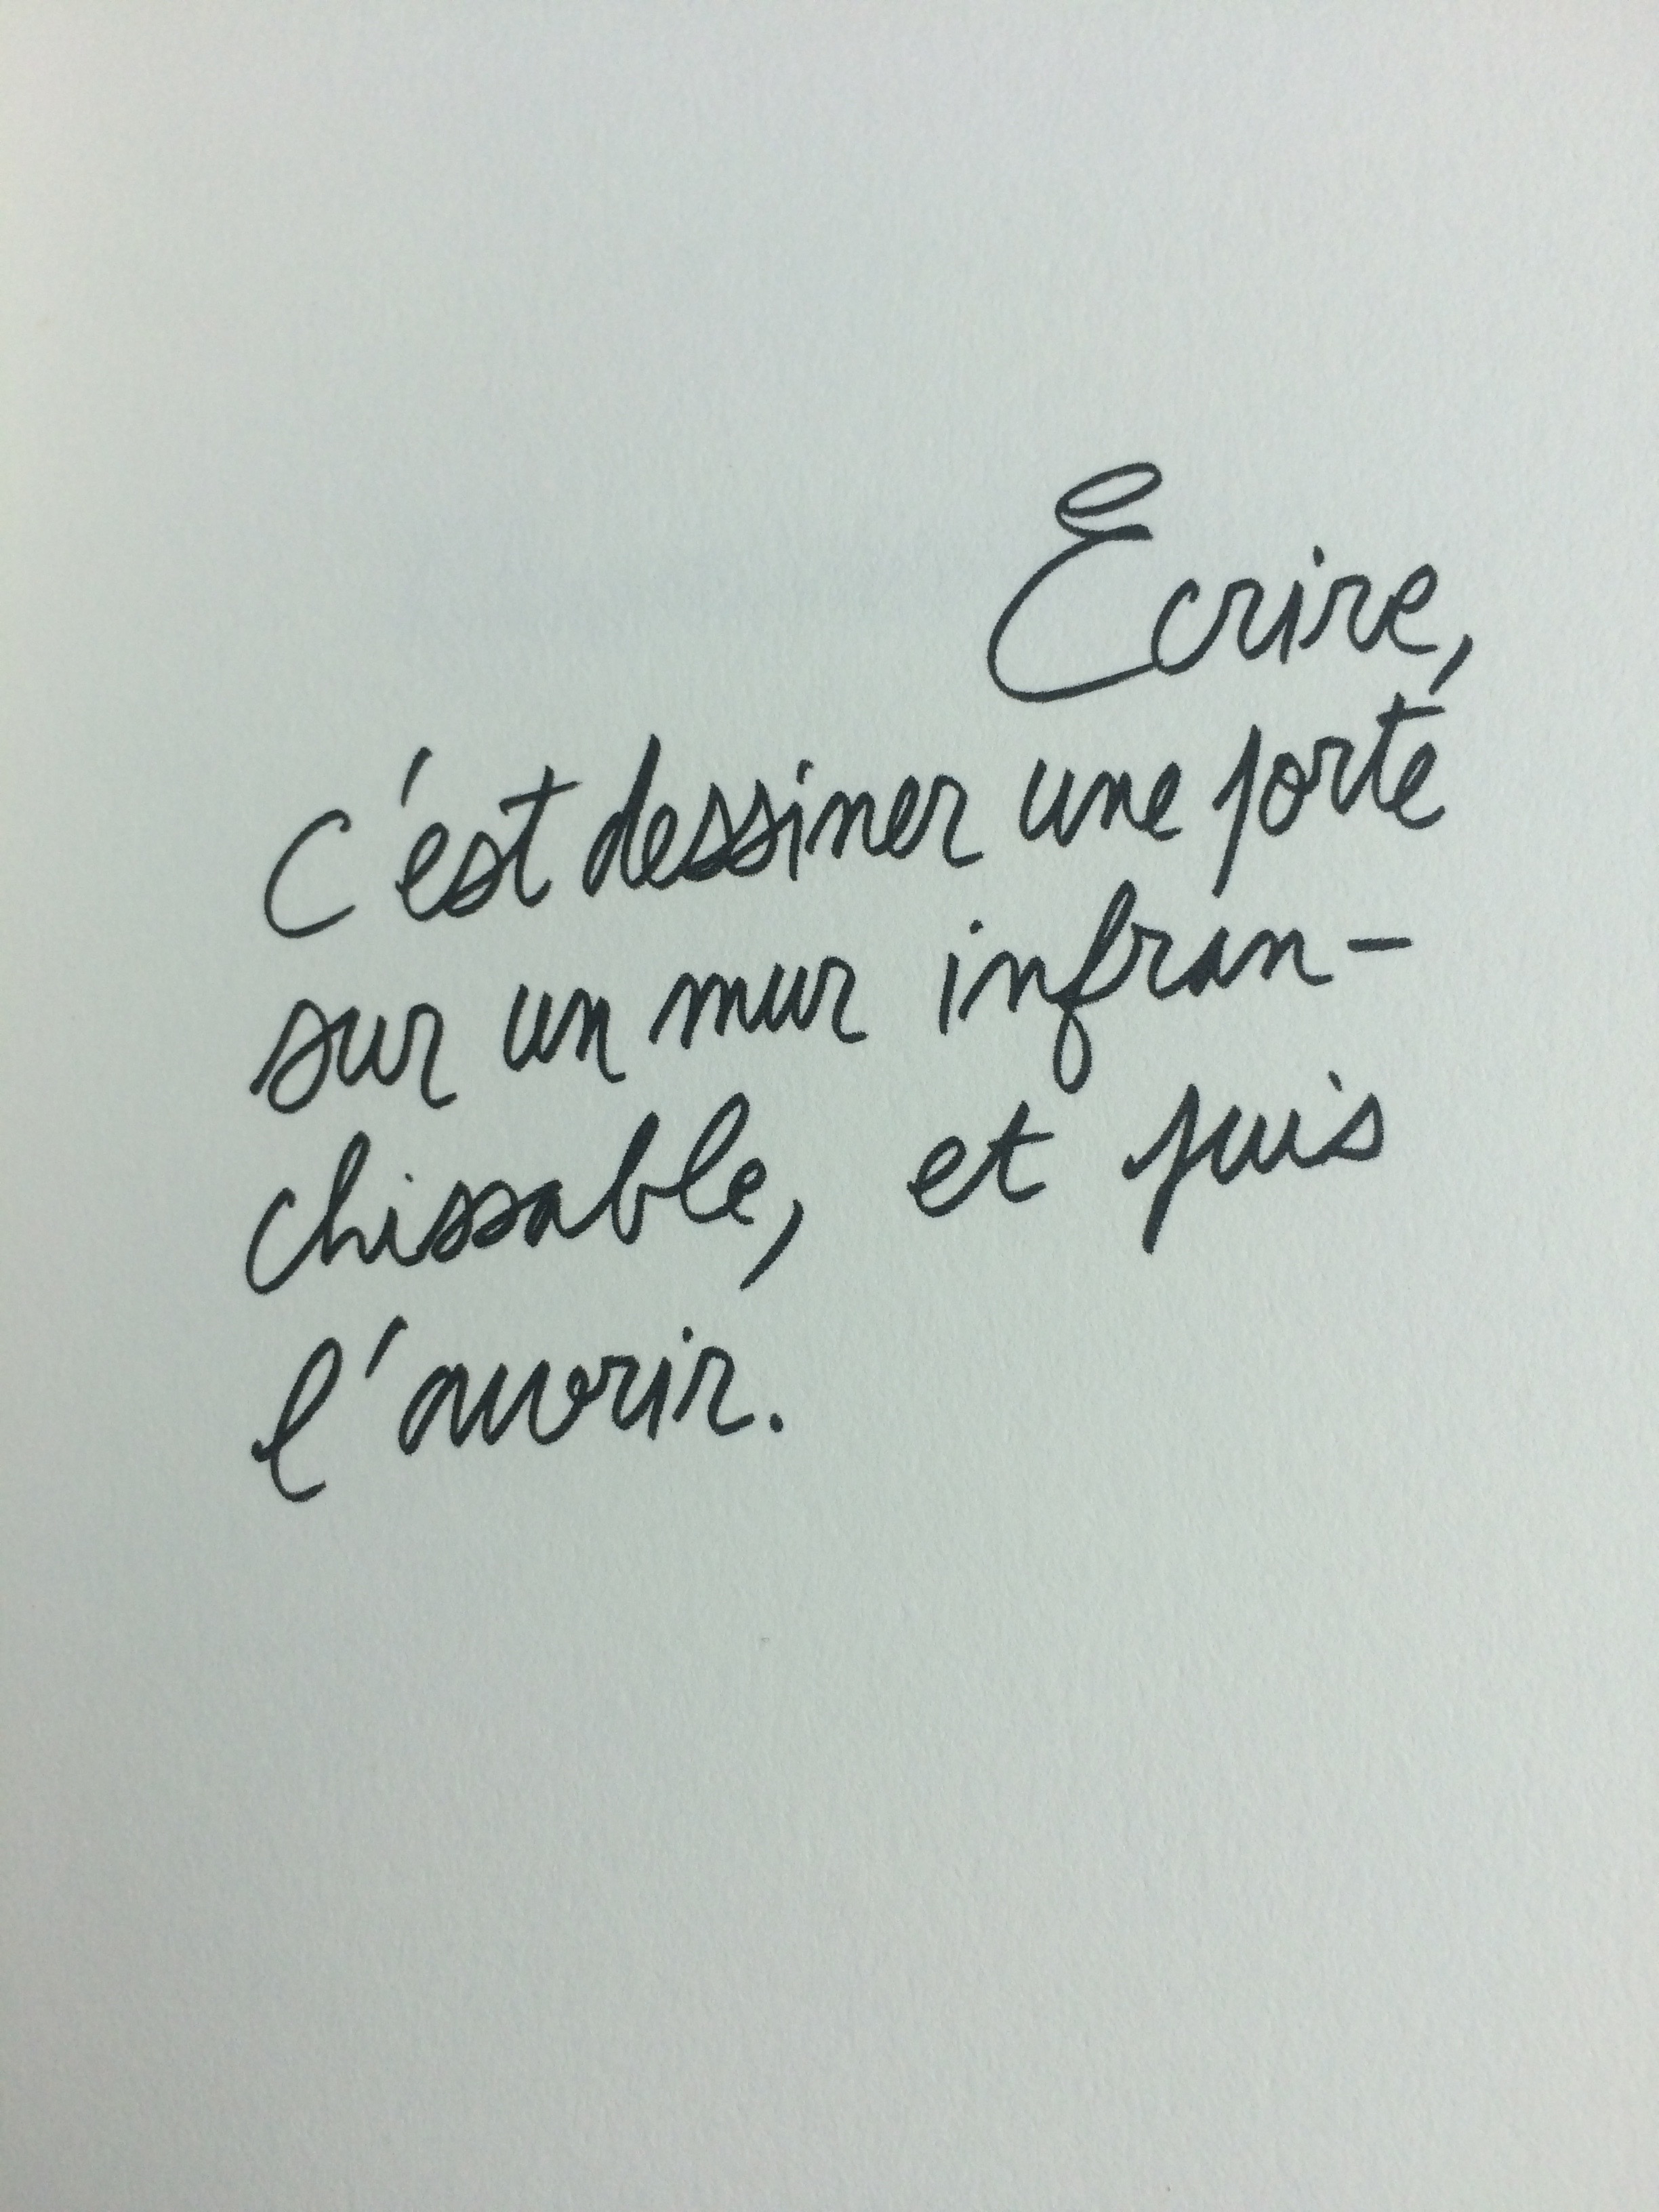 Ecrire,
c'est dessiner une porte
sur un mur infran-
chissable, et puis
l'ouvrir.